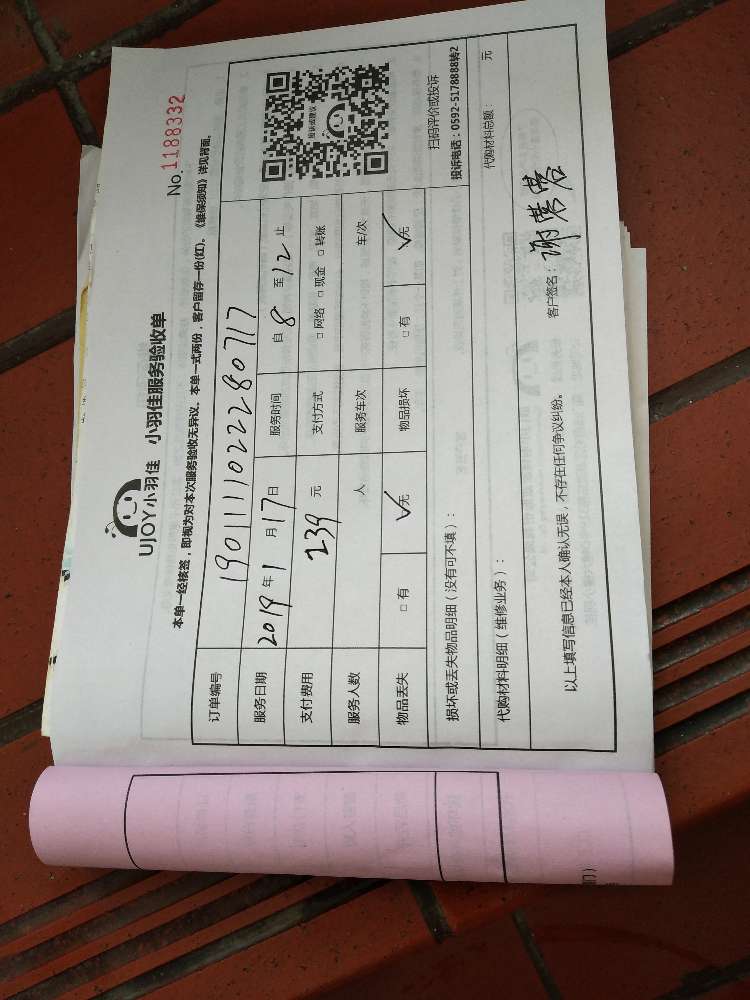 UJOY小羽佳 小羽佳服务验收单
No.1188332
本单一经核签，即视为对本次服务验收无异议。本单一式两份，客户留存一份(红)。《维保须知》详见背面。
订单编号 1901111022280717
服务日期 2019年1月17日 服务时间 自8至12止
支付费用 239元 支付方式 □网络 □现金 □转账
服务人数 人 服务车次 车/次
物品丢失 □有 ✓无 物品损坏 □有 ✓无
投诉或建议
扫码评价或投诉
投诉电话：0592-5178888转2
损坏或丢失物品明细（没有可不填）：
代购材料明细（维修业务）： 代购材料总额： 元
以上填写信息已经本人确认无误，不存在任何争议纠纷。 客户签名：谢